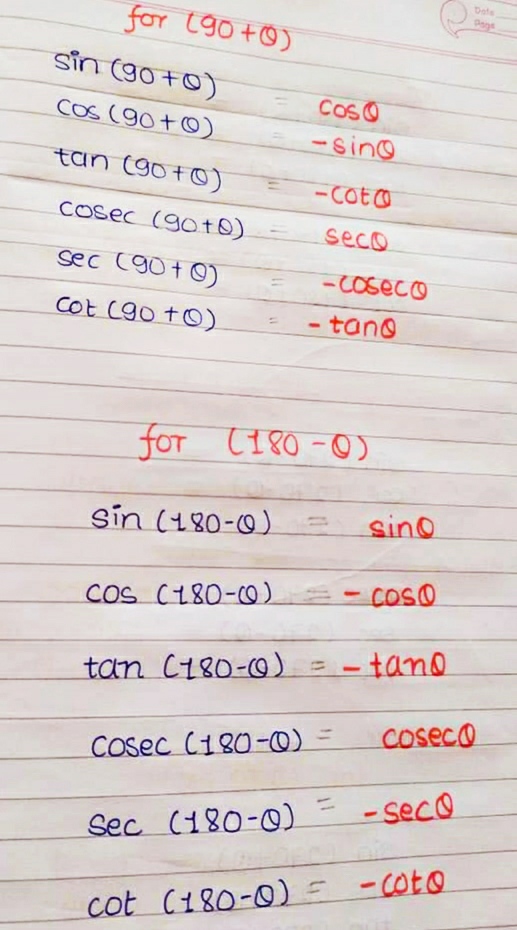 Date
Page
for (90+θ)
sin (90+θ) = cosθ
cos (90+θ) = -sinθ
tan (90+θ) = -cotθ
cosec (90+θ) = secθ
sec (90+θ) = -cosecθ
cot (90+θ) = -tanθ
for (180-θ)
sin (180-θ) = sinθ
cos (180-θ) = -cosθ
tan (180-θ) = -tanθ
cosec (180-θ) = cosecθ
sec (180-θ) = -secθ
cot (180-θ) = -cotθ